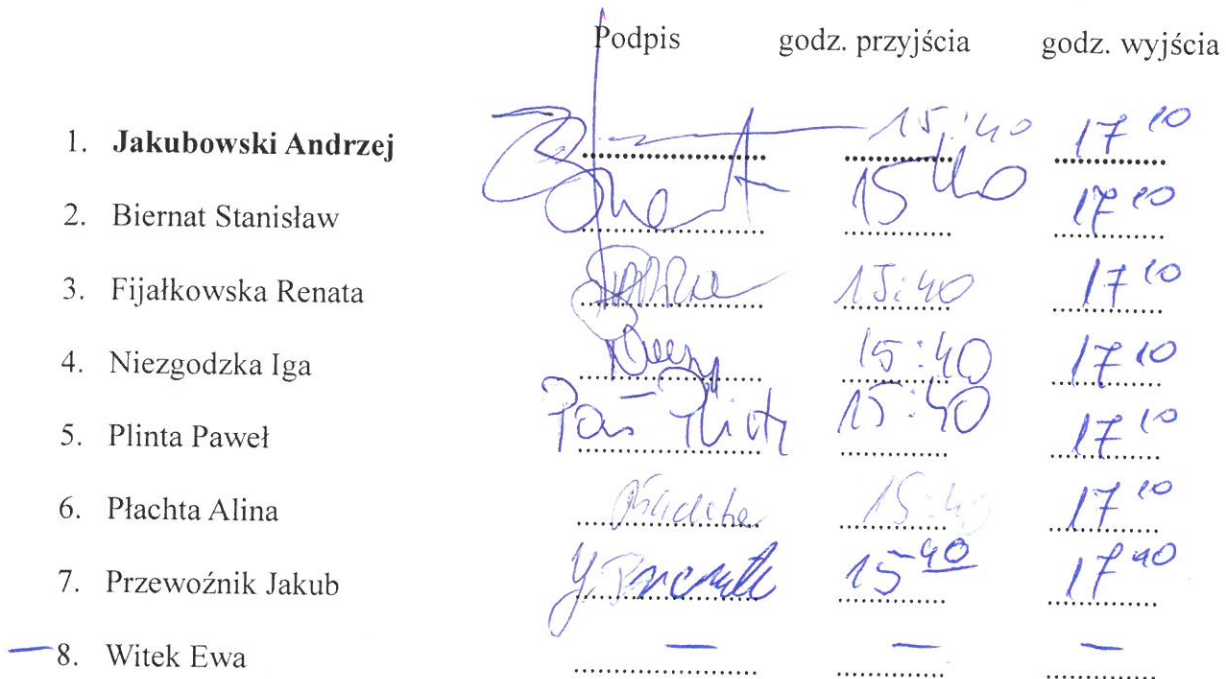 Podpis godz. przyjścia godz. wyjścia
1. Jakubowski Andrzej 15:40 17 10
2. Biernat Stanisław 15 40 17 10
3. Fijałkowska Renata 15:40 17 10
4. Niezgodzka Iga 15:40 17 10
5. Plinta Paweł 15:40 17 10
6. Płachta Alina 15:40 17 10
7. Przewoźnik Jakub 15 40 17 40
— 8. Witek Ewa — — —